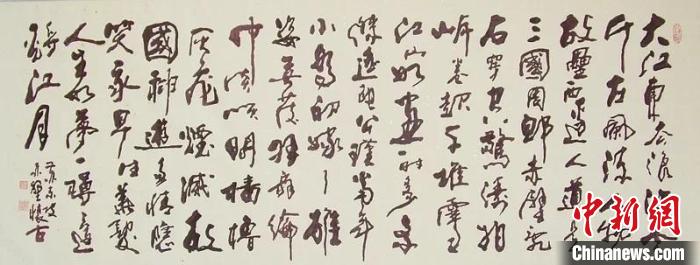 大江東去浪淘
千古風流人物
故壘西邊人道是
三國周郎赤壁亂
石穿空驚濤拍
岸卷起千堆雪
江山如畫一時多少
傑遙想公瑾當年
小喬初嫁了雄
姿英發羽扇綸
巾談笑間檣櫓
灰飛煙滅故
國神遊多情應
笑我早生華髮
人生如夢一樽還
酹江月
蘇東坡
赤壁懷古
中新网
Chinanews.com